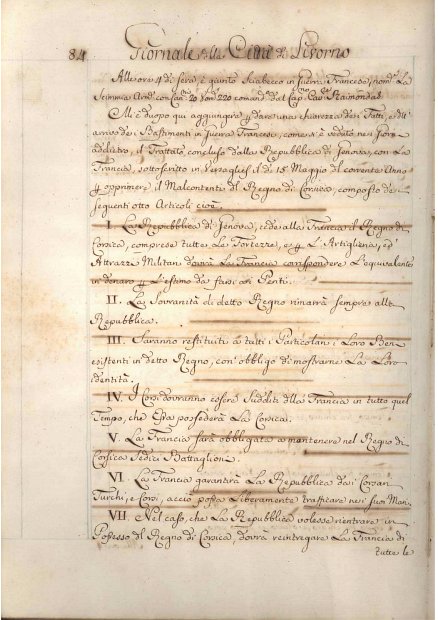 84 Giornale della Città di Livorno
Alle ore 4 di sera, è giunto Sciabecco in guerra Francese, nom.to La
Scimmia Arm.to con Can.ni 20 e Uom.ni 220 comand.to del Cap.no Cav.re Raimondis.
M'è duopo qui aggiungere p dare una chiarezza dei Fatti, e dell'
arrivo dei Bastimenti in guerra Francesi, come si è veduto nei fuori
addietro, il Trattato concluso dalla Repubblica di Genova, con La
Francia, sottoscritto in Versaglies il dì 15 Maggio del corrente Anno
p opprimere il Malcontenti del Regno di Corsica, composto de
seguenti otto Articoli cioè.
I. La Repubblica di Genova, cede alla Francia il Regno di
Corsica, comprese tutte le Fortezze, e p L'Artiglieria, ed
Attrazzi Militari dovrà La Francia corrispondere L'equivalente
in denaro p L'estimo da farsi dai Periti.
II. La Sovranità di detto Regno rimarrà sempre alla
Repubblica.
III. Saranno restituiti a tutti i Particolari i Loro Beni
esistenti in detto Regno, con obbligo di mostrarne La Loro
identità.
IV. I Corsi dovranno essere Sudditi della Francia in tutto quel
Tempo, che Essa possederà La Corsica.
V. La Francia sarà obbligata a mantenere nel Regno di
Corsica Sedici Battaglioni.
VI. La Francia garantirà La Repubblica dai Corsari
Turchi, e Corsi, acciò possa Liberamente trafficare nei suoi Mari.
VII. Nel caso, che La Repubblica volesse rientrare in
Possesso del Regno di Corsica, dovrà reintegrare La Francia di
tutte le